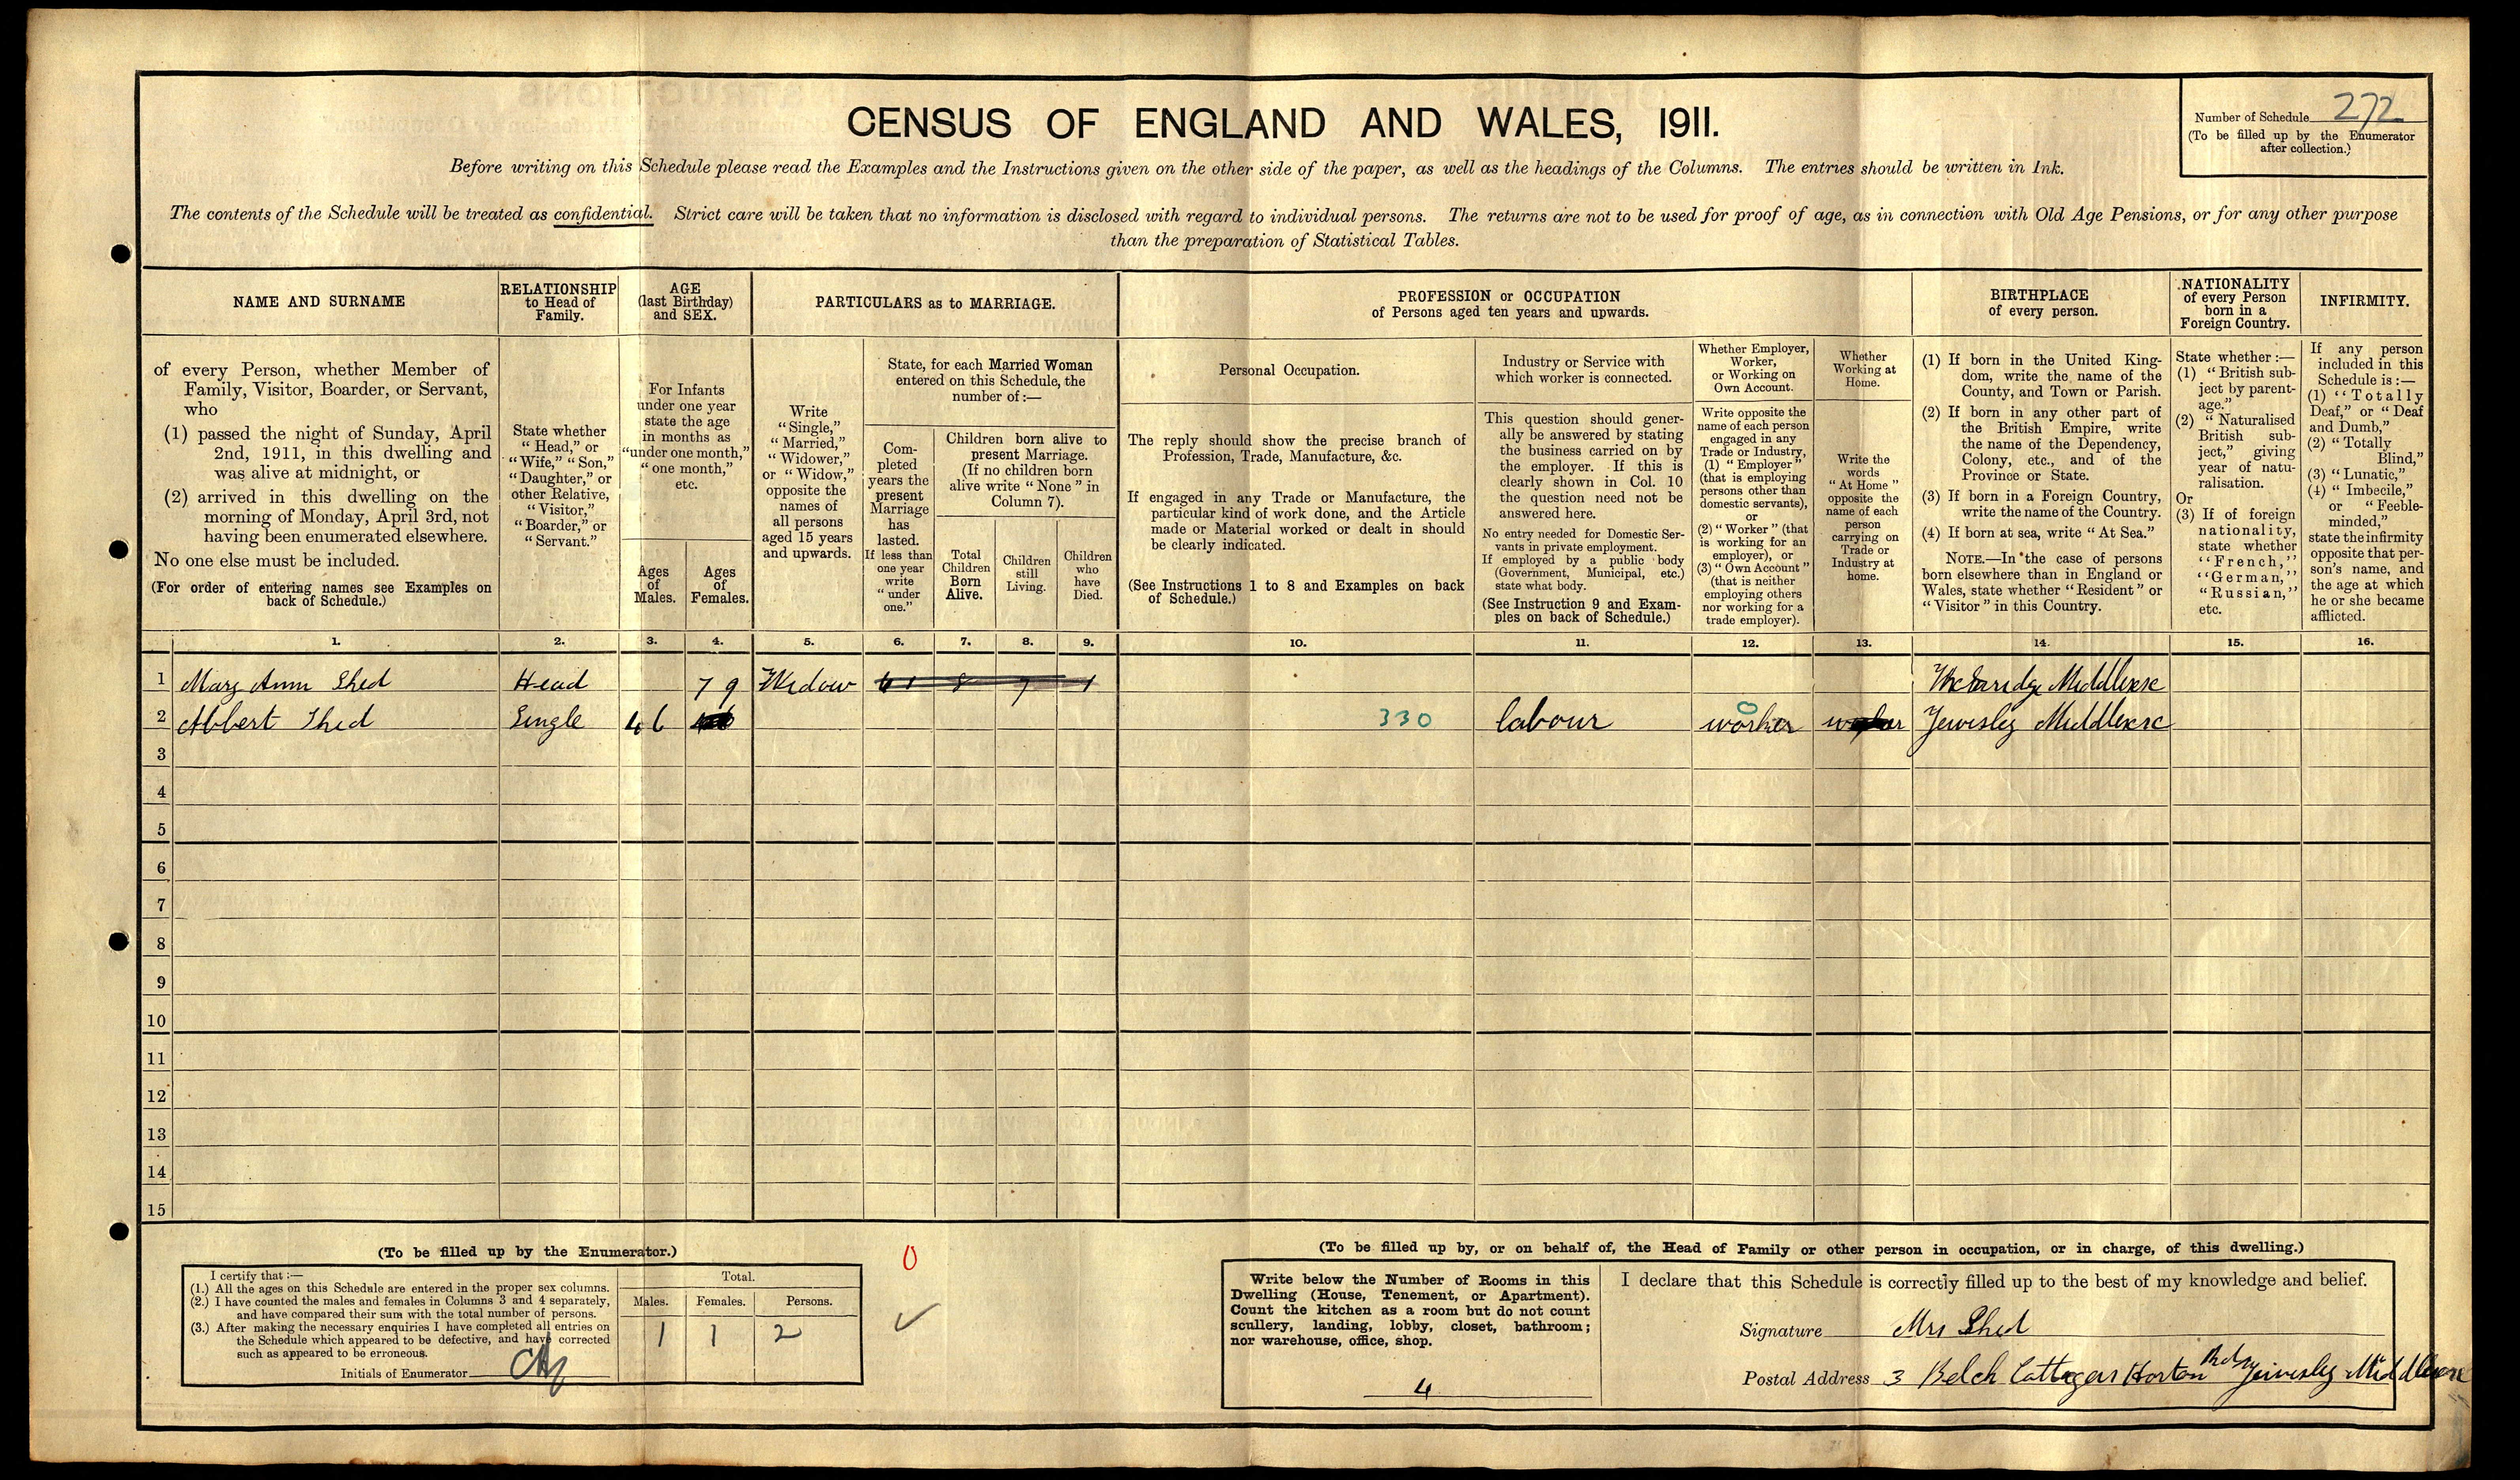 CENSUS OF ENGLAND AND WALES, 1911.
Number of Schedule 272
(To be filled up by the Enumerator
after collection.)
Before writing on this Schedule please read the Examples and the Instructions given on the other side of the paper, as well as the headings of the Columns. The entries should be written in Ink.
The contents of the Schedule will be treated as confidential. Strict care will be taken that no information is disclosed with regard to individual persons. The returns are not to be used for proof of age, as in connection with Old Age Pensions, or for any other purpose
than the preparation of Statistical Tables.
NAME AND SURNAME
of every Person, whether Member of
Family, Visitor, Boarder, or Servant,
who
(1) passed the night of Sunday, April
2nd, 1911, in this dwelling and
was alive at midnight, or
(2) arrived in this dwelling on the
morning of Monday, April 3rd, not
having been enumerated elsewhere.
No one else must be included.
(For order of entering names see Examples on
back of Schedule.)
RELATIONSHIP
to Head of
Family.
State whether
"Head," or
"Wife," "Son,"
"Daughter," or
other Relative,
"Visitor,"
"Boarder," or
"Servant."
AGE
(last Birthday)
and SEX.
For Infants
under one year
state the age
in months as
"under one month,"
"one month,"
etc.
Ages
of
Males.
Ages
of
Females.
PARTICULARS as to MARRIAGE.
Write
"Single,"
"Married,"
"Widower,"
or "Widow,"
opposite the
names of
all persons
aged 15 years
and upwards.
State, for each Married Woman
entered on this Schedule, the
number of :—
Com-
pleted
years the
present
Marriage
has
lasted.
If less than
one year
write
"under
one."
Children born alive to
present Marriage.
(If no children born
alive write "None" in
Column 7).
Total
Children
Born
Alive.
Children
still
Living.
Children
who
have
Died.
PROFESSION or OCCUPATION
of Persons aged ten years and upwards.
Personal Occupation.
The reply should show the precise branch of
Profession, Trade, Manufacture, &c.
If engaged in any Trade or Manufacture, the
particular kind of work done, and the Article
made or Material worked or dealt in should
be clearly indicated.
(See Instructions 1 to 8 and Examples on back
of Schedule.)
Industry or Service with
which worker is connected.
This question should gener-
ally be answered by stating
the business carried on by
the employer. If this is
clearly shown in Col. 10
the question need not be
answered here.
No entry needed for Domestic Ser-
vants in private employment.
If employed by a public body
(Government, Municipal, etc.)
state what body.
(See Instruction 9 and Exam-
ples on back of Schedule.)
Whether Employer,
Worker,
or Working on
Own Account.
Write opposite the
name of each person
engaged in any
Trade or Industry,
(1) "Employer"
(that is employing
persons other than
domestic servants),
or
(2) "Worker" (that
is working for an
employer), or
(3) "Own Account"
(that is neither
employing others
nor working for a
trade employer).
Whether
Working at
Home.
Write the
words
"At Home"
opposite the
name of each
person
carrying on
Trade or
Industry at
home.
BIRTHPLACE
of every person.
(1) If born in the United King-
dom, write the name of the
County, and Town or Parish.
(2) If born in any other part of
the British Empire, write
the name of the Dependency,
Colony, etc., and of the
Province or State.
(3) If born in a Foreign Country,
write the name of the Country.
(4) If born at sea, write "At Sea."
NOTE.—In the case of persons
born elsewhere than in England or
Wales, state whether "Resident" or
"Visitor" in this Country.
NATIONALITY
of every Person
born in a
Foreign Country.
State whether :—
(1) "British sub-
ject by parent-
age."
(2) "Naturalised
British sub-
ject," giving
year of natu-
ralisation.
Or
(3) If of foreign
nationality,
state whether
"French,"
"German,"
"Russian,"
etc.
INFIRMITY.
If any person
included in this
Schedule is :—
(1) "Totally
Deaf," or "Deaf
and Dumb,"
(2) "Totally
Blind,"
(3) "Lunatic,"
(4) "Imbecile,"
or "Feeble-
minded,"
state the infirmity
opposite that per-
son's name, and
the age at which
he or she became
afflicted.
1. 2. 3. 4. 5. 6. 7. 8. 9. 10. 11. 12. 13. 14. 15. 16.
1 Mary Ann Shed Head 79 Widow 61 8 7 1 Middlexse
2 Albert Shed Single 46 330 labour worker 0 Yewsley Middlexse
3
4
5
6
7
8
9
10
11
12
13
14
15
(To be filled up by the Enumerator.)
I certify that :—
(1.) All the ages on this Schedule are entered in the proper sex columns.
(2.) I have counted the males and females in Columns 3 and 4 separately,
and have compared their sum with the total number of persons.
(3.) After making the necessary enquiries I have completed all entries on
the Schedule which appeared to be defective, and have corrected
such as appeared to be erroneous.
Initials of Enumerator
Total.
Males. Females. Persons.
1 1 2
0
(To be filled up by, or on behalf of, the Head of Family or other person in occupation, or in charge, of this dwelling.)
Write below the Number of Rooms in this
Dwelling (House, Tenement, or Apartment).
Count the kitchen as a room but do not count
scullery, landing, lobby, closet, bathroom;
nor warehouse, office, shop.
4
I declare that this Schedule is correctly filled up to the best of my knowledge and belief.
Signature Mrs Shed
Postal Address 3 Belch Cottages Horton Yewsley Middlexse